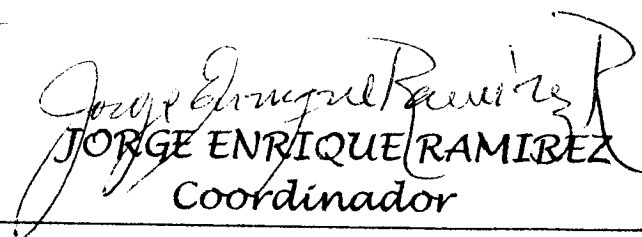 Jorge Enrique Ramírez R
JORGE ENRIQUE RAMIREZ
Coordinador